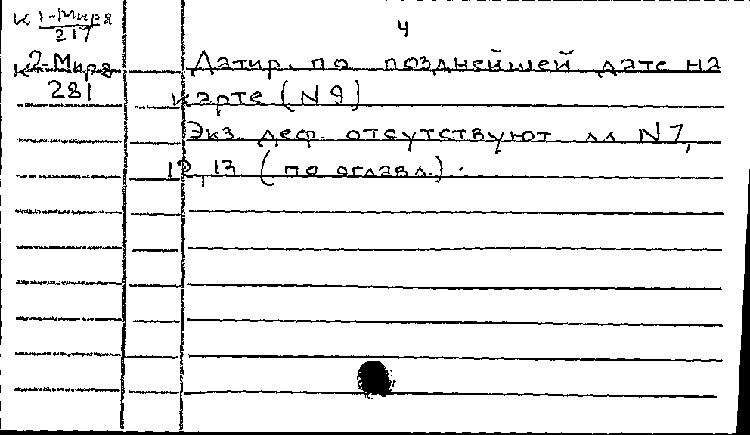 К 1-Мира
217
4
К 2-Мира
281
Датир. по позднейшей дате на
карте (N 9)
Экз. деф. отсутствуют лл N 7,
12, 13 (по оглавл.).